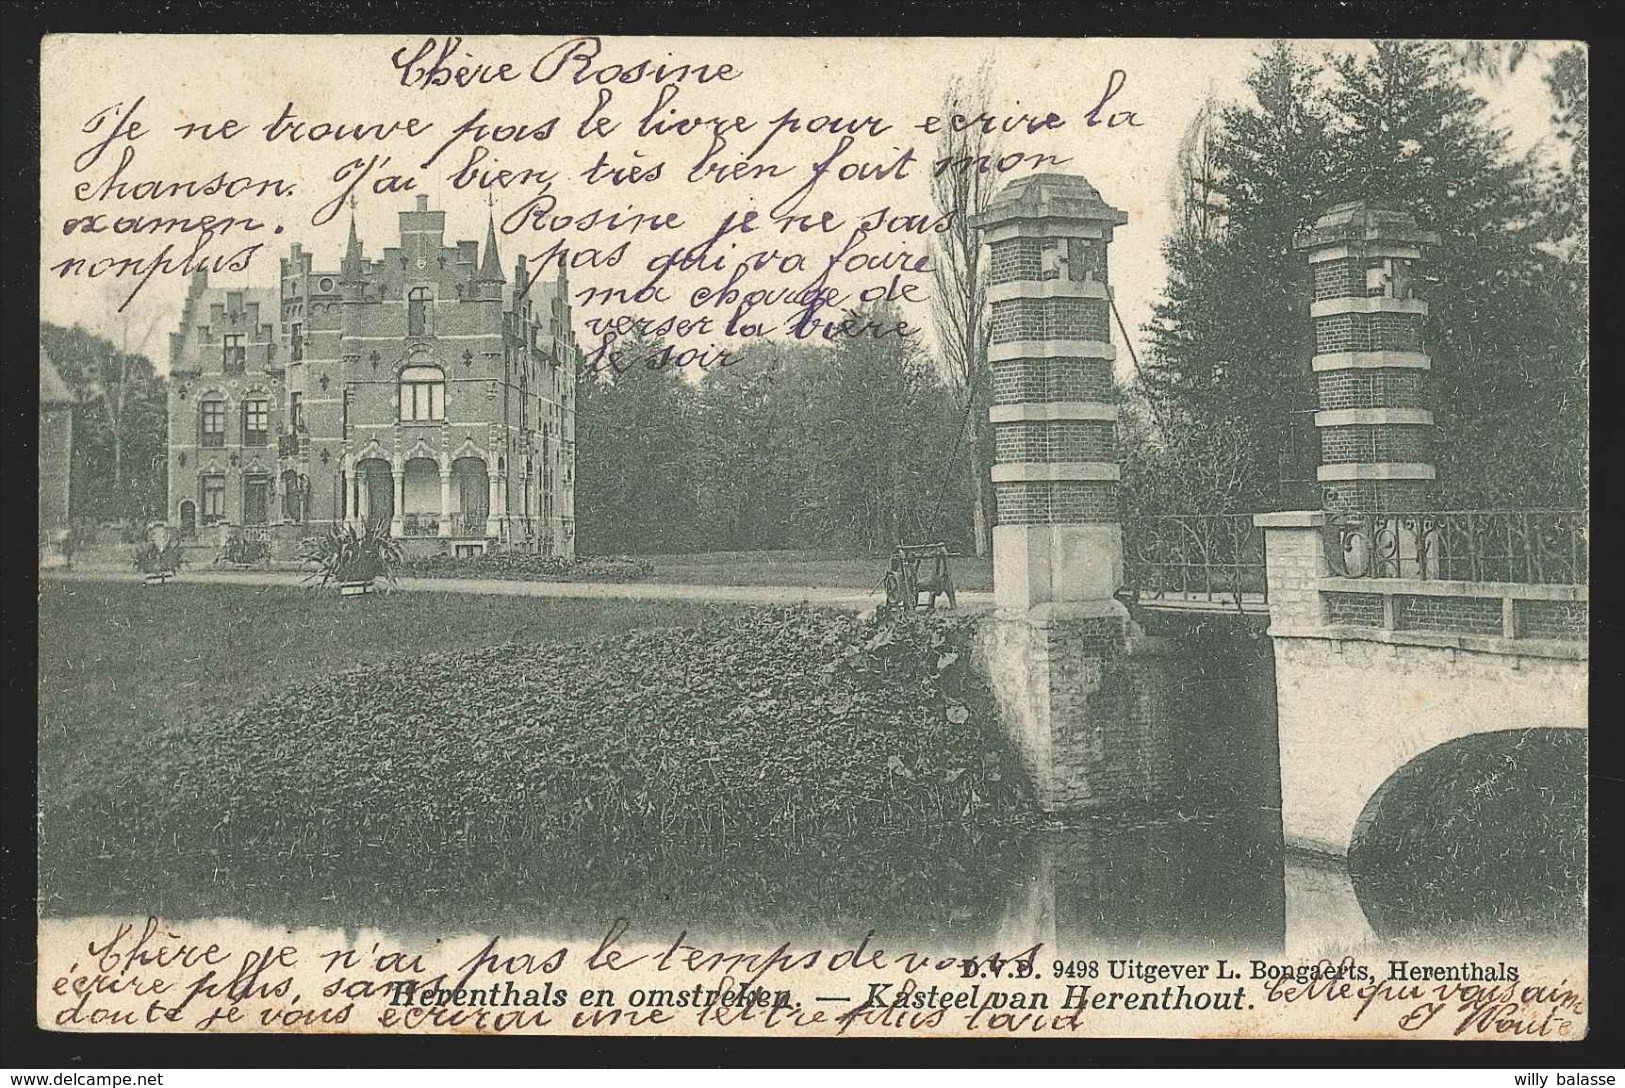 Chère Rosine
Je ne trouve pas le livre pour écrire la
chanson. J'ai bien, très bien fait mon
examen. Rosine je ne sais
nonplus pas qui va faire
ma charge de
verser la bière
le soir
Chère je n'ai pas le temps de vous
écrire plus, sans
doute je vous écrirai une lettre plus tard
Celle qui vous aime
D.V.D. 9498 Uitgever L. Bongaerts, Herenthals
Herenthals en omstreken. — Kasteel van Herenthout.
willy balasse